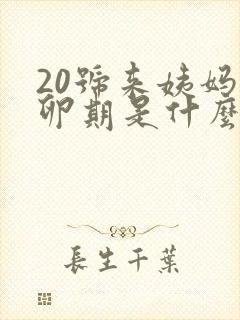 20號來姨媽
卵期是什麼
長生千葉